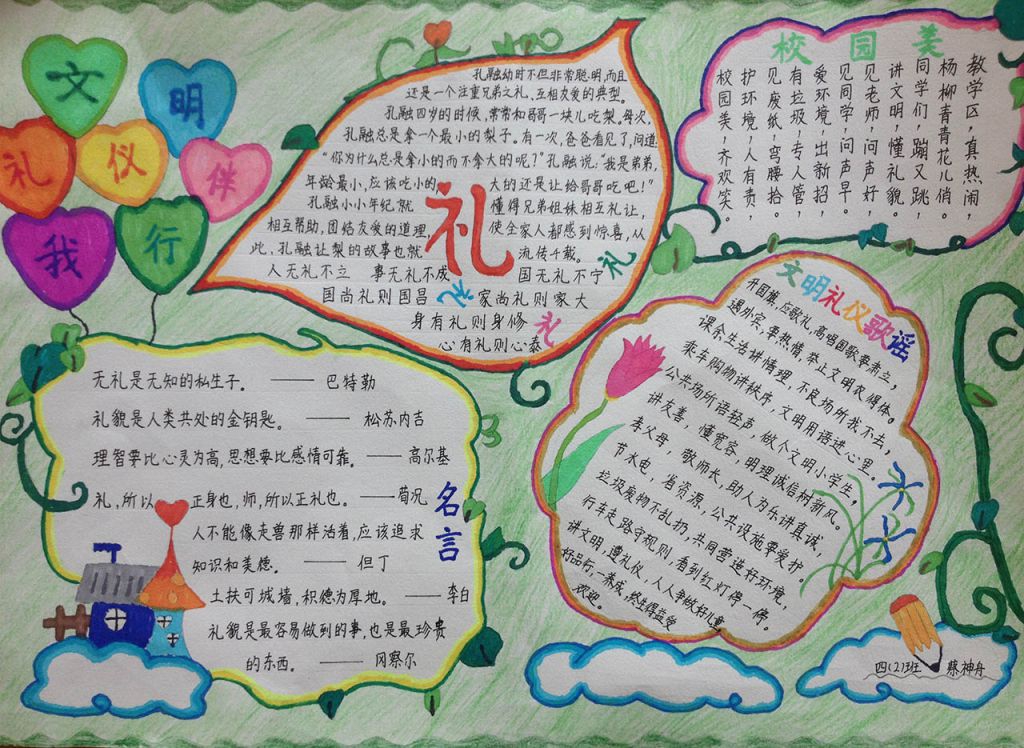 文明礼仪伴我行
孔融幼时不但非常聪明,而且
还是一个注重兄弟之礼、互相友爱的典型。
孔融四岁的时候,常常和哥哥一块儿吃梨。每次,
孔融总是拿一个最小的梨子。有一次,爸爸看见了,问道:
“你为什么总是拿小的而不拿大的呢?”孔融说:“我是弟弟,
年龄最小,应该吃小的,大的还是让给哥哥吃吧!”
孔融小小年纪就懂得兄弟姐妹相互礼让,
相互帮助,团结友爱的道理,使全家人都感到惊喜,从
此,孔融让梨的故事也就流传千载。
礼
人无礼不立 事无礼不成 国无礼不宁 礼
国尚礼则国昌 礼 家尚礼则家大
身有礼则身修 礼
心有礼则心泰
校园美
教学区,真热闹,
杨柳青青花儿俏。
同学们,蹦又跳,
讲文明,懂礼貌。
见老师,问声好
见同学,问声早。
爱环境,出新招,
有垃圾,专人管,
见废纸,弯腰拾。
护环境,人有责,
校园美,齐欢笑。
无礼是无知的私生子。 —— 巴特勒
礼貌是人类共处的金钥匙。 —— 松苏内吉
理智要比心灵为高,思想要比感情可靠。 —— 高尔基
礼,所以正身也,师,所以正礼也。 ——荀况
人不能像走兽那样活着,应该追求
知识和美德。 —— 但丁
土扶可城墙,积德为厚地。 ——李白
礼貌是最容易做到的事,也是最珍贵
的东西。 —— 冈察尔
名言
文明礼仪歌谣
升国旗,应敬礼,高唱国歌要肃立,
遇外宾,要热情,举止文明衣得体。
课余生活讲情理,不良场所我不去,
乘车购物讲秩序,文明用语进心里。
公共场所语轻声,做个文明小学生。
讲友善,懂宽容,明理诚信树新风。
孝父母,敬师长,助人为乐讲真诚,
节水电,省资源,公共设施要爱护。
垃圾废物不乱扔,共同营造好环境,
行车走路守规则,看到红灯停一停。
讲文明,遵礼仪,人人争做好儿童
好品行,一养成,终生得益受
欢迎。
四(2)班 蔡神舟